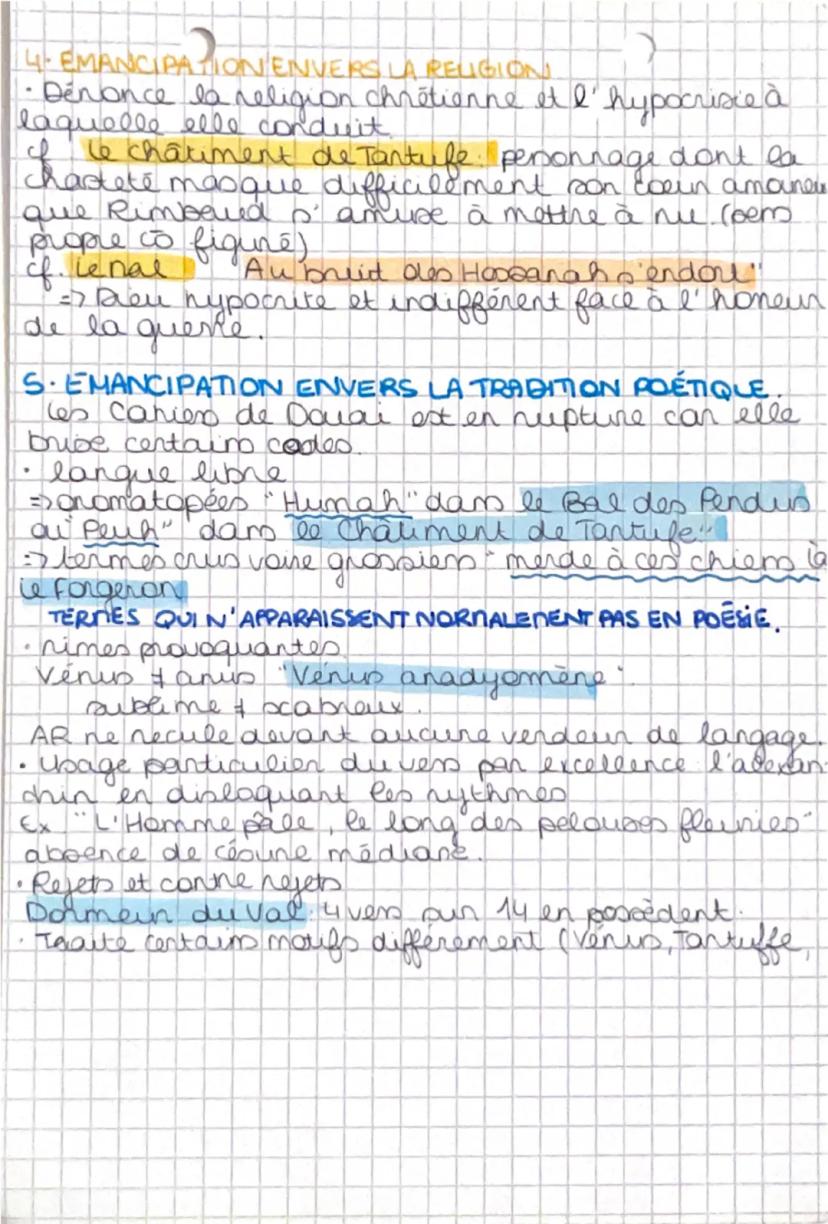 4. EMANCIPATION ENVERS LA RELIGION
· Dénonce la religion chrétienne et l'hypocrisie à
laquelle elle conduit.
cf le châtiment de Tartufe : personnage dont la
chasteté masque difficilement son coeur amoureu
que Rimbaud s'amuse à mettre à nu (sens
propre co figuré)
cf. Le mal "Au bruit des Hossanah s'endort"
=> Dieu hypocrite et indifférent face à l'horreur
de la guerre.
5. EMANCIPATION ENVERS LA TRADITION POÉTIQUE.
Les Cahiers de Douai est en rupture car elle
brise certains codes.
· langue libre
=> onomatopées "Hurrah" dans le Bal des Pendus
ou "Peuh" dans le Châtiment de Tartufe"
=> termes crus voire grossiers "merde à ces chiens là
Le Forgeron
TERMES QUI N'APPARAISSENT NORMALEMENT PAS EN POÉSIE.
· rimes provoquantes
Vénus ≠ anus "Vénus anadyomène".
sublime ≠ scabreux.
AR ne recule devant aucune verdeur de langage.
· Usage particulier du vers par excellence l'alexan-
drin en disloquant les rythmes
Ex "L'Homme pâle, le long des pelouses fleuries"
absence de césure médiane.
· Rejets et contre rejets
Dormeur du Val : 4 vers sur 14 en possèdent.
· Traite certains motifs différement (Vénus, Tartuffe,